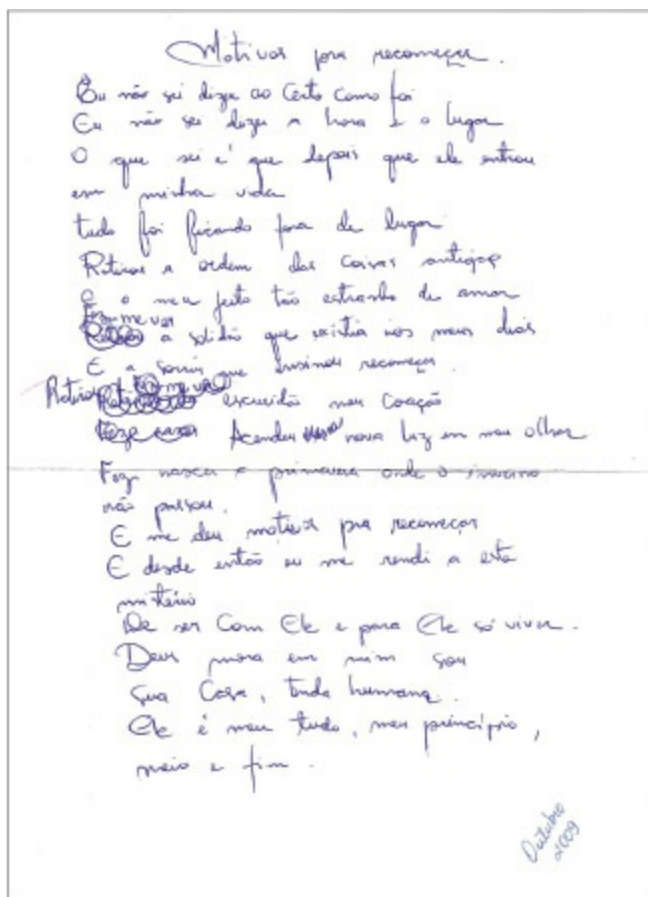 Motivos pra recomeçar.
Eu não sei dizer ao Certo Como foi
Eu não sei dizer a hora e o lugar
O que sei é que depois que ele entrou
em minha vida
tudo foi ficando fora de lugar
Retirou a ordem das Coisas antigas
E o meu jeito tão estranho de amar
Fez-me ver
a solidão que existia nos meus dias
E a sorrir que ensinou recomeçar.
Retirou escuridão meu Coração
Acendeu nova luz em meu olhar
Fez nascer a primavera onde o inverno
não passou.
E me deu motivos pra recomeçar
E desde então eu me rendi a este
mistério
De ser Com Ele e para Ele só viver.
Deus mora em mim sou
Sua Casa, tenda humana.
Ele é meu tudo, meu princípio,
meio e fim.
Outubro
2009